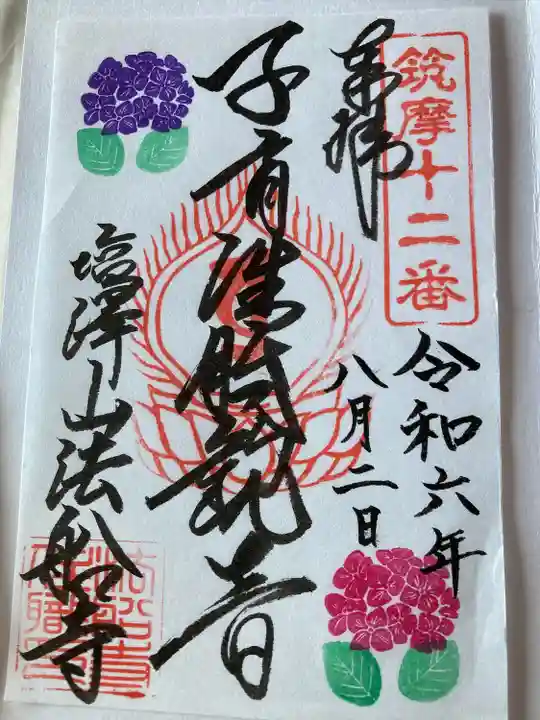 筑摩十二番
奉拝
令和六年
八月二日
子育准胝観音
塩澤山法船寺